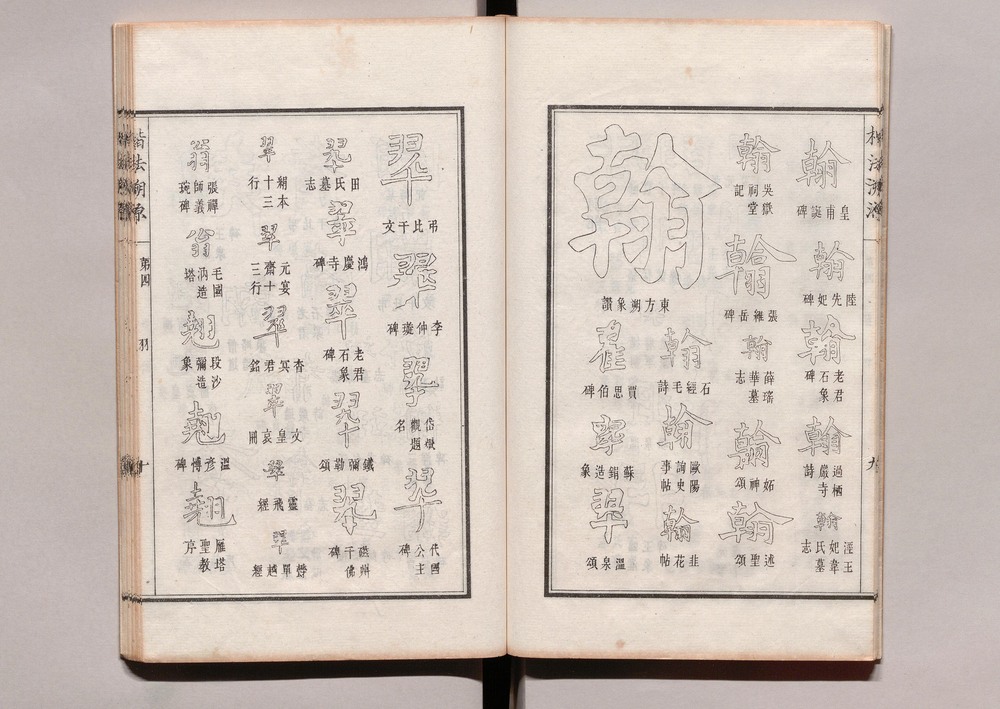 翰
皇甫誕碑
翰
陸先妃碑
翰
老君石象碑
翰
過栖巖寺詩
翰
涇王妃韋氏墓志
翰
吳嶽祠堂記
翰
張維岳碑
翰
薛瑤華墓志
翰
妬神頌
翰
述聖頌
翰
東方朔象讚
翰
石經毛詩
翰
歐陽詢史事帖
翰
韭花帖
翟
賈思伯碑
翠
蘇絹造象
翠
溫泉頌
翠
弔比干文
翠
李仲璇碑
翠
岱嶽觀題名
翠
代國公主碑
翠
田氏墓志
翠
鴻慶寺碑
翠
老君石象碑
翠
鐵彌勒頌
翠
磁州千佛碑
翠
十三行
翠
元宴齋十三行
翠
杳冥君銘
翠
文皇哀冊
翠
靈飛經
翠
單越經
翁
張禪師義琬碑
翁
毛國汭造塔
翹
段沙彌造象
翹
溫彥博碑
翹
雁塔聖教序
楷法溯源
第四
羽
十